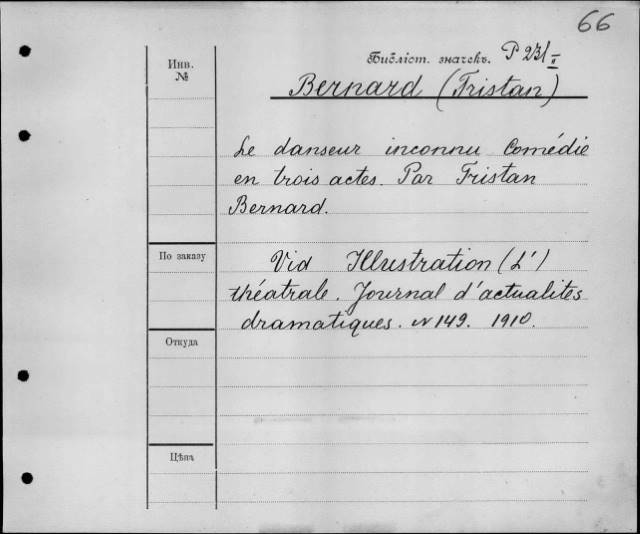 66
Библіот. значекъ. P 231 II
Инв.
№
Bernard (Tristan)
Le danseur inconnu Comédie
en trois actes. Par Tristan
Bernard.
По заказу
Vid Illustration (L')
théatrale. Journal d'actualites
dramatiques. N 149. 1910.
Откуда
Цѣна